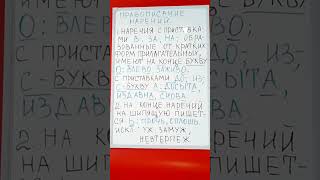 ПРАВОПИСАНИЕ
НАРЕЧИЙ.
1. НАРЕЧИЯ С ПРИСТАВКА-
МИ В-, ЗА-, НА-, ОБРА-
ЗОВАННЫЕ ОТ КРАТКИХ
ФОРМ ПРИЛАГАТЕЛЬНЫХ,
ИМЕЮТ НА КОНЦЕ БУКВУ
О: ВЛЕВО, ЗАЖИВО;
С ПРИСТАВКАМИ ДО-, ИЗ-,
С- БУКВУ А: ДОСЫТА,
ИЗДАВНА, СНОВА.
2. НА КОНЦЕ НАРЕЧИЙ
НА ШИПЯЩУЮ ПИШЕТ-
СЯ Ь: ПРОЧЬ, СПЛОШЬ.
ИСКЛ.: УЖ, ЗАМУЖ,
НЕВТЕРПЁЖ.